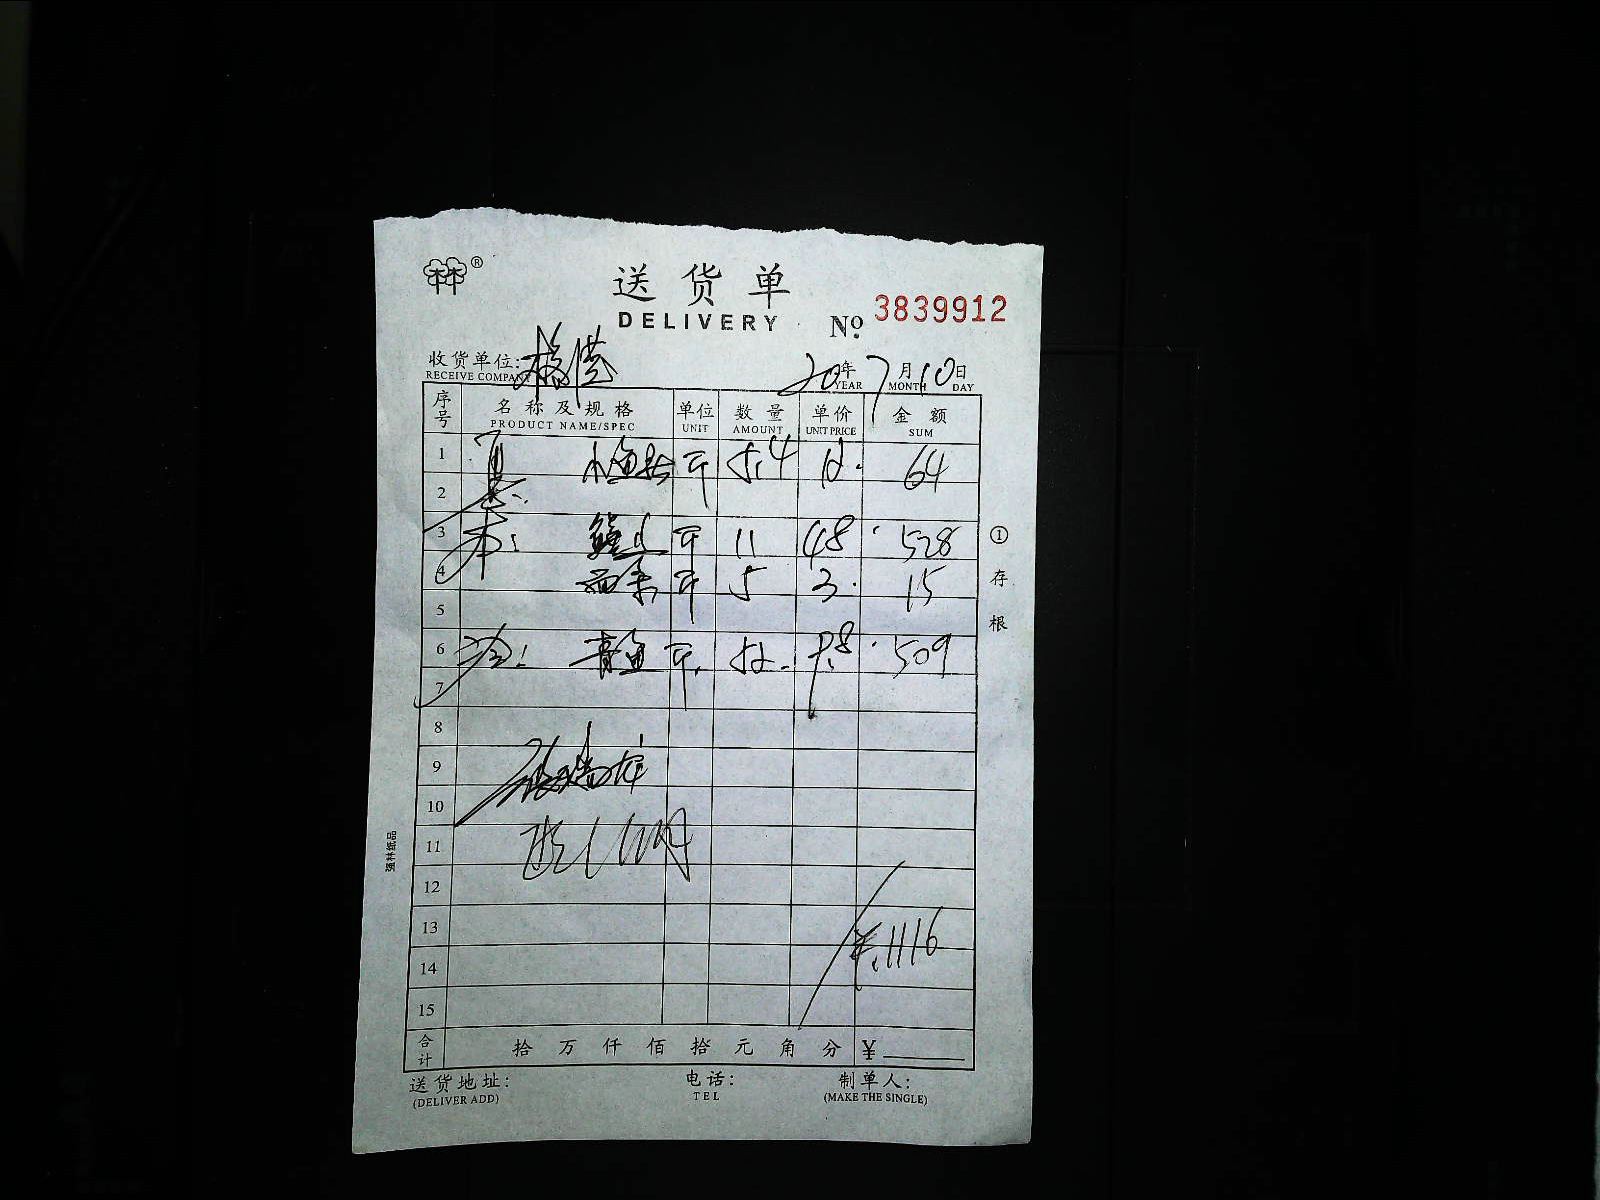 林林®
送货单
DELIVERY
№ 3839912
收货单位:
RECEIVE COMPANY
20年 7月 10日
YEAR MONTH DAY
序号 名称及规格 单位 数量 单价 金额
PRODUCT NAME/SPEC UNIT AMOUNT UNIT PRICE SUM
1 斤 5.4 12. 64
2
3 斤 11 48 528
4 斤 5 3. 15
5
6 青鱼 斤 52 9.8 509
7
8
9
10
11
12
13 ¥.1116
14
15
合计 拾 万 仟 佰 拾 元 角 分 ¥
送货地址: 电话: 制单人:
(DELIVER ADD) TEL (MAKE THE SINGLE)
①存根
强林纸品